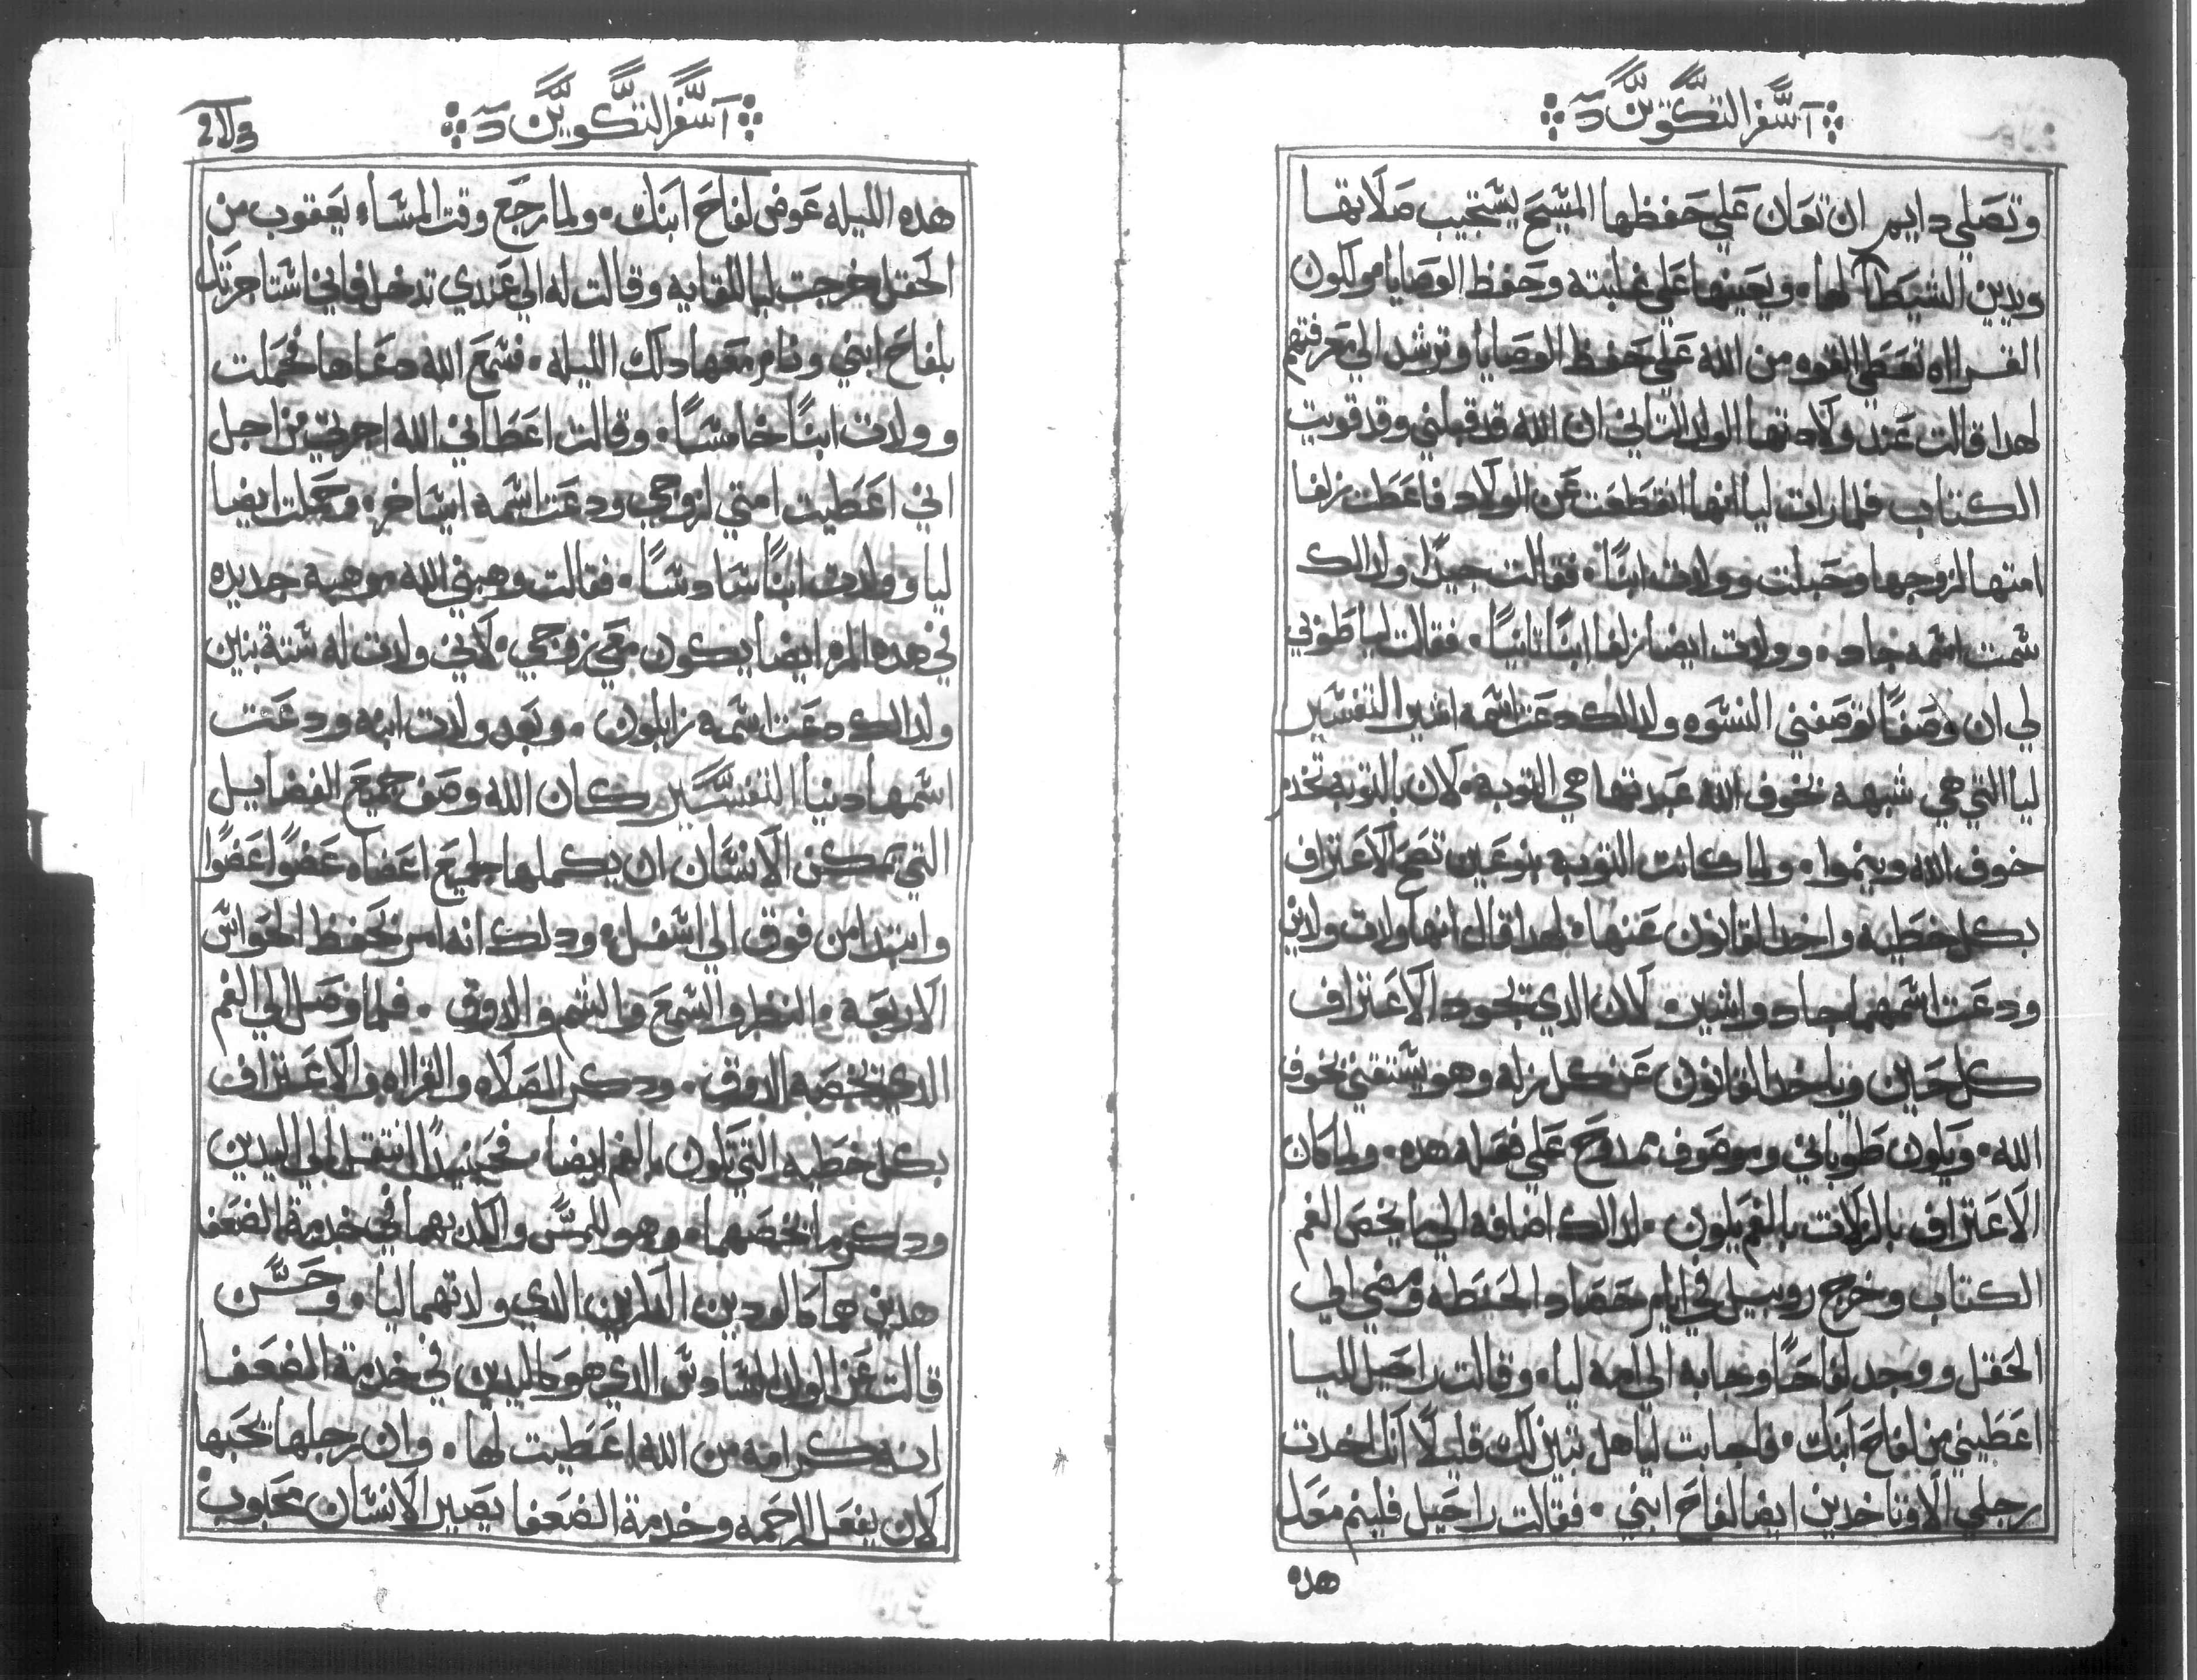 سفر التكوين
وتصلي دايم ان تعان علي حفظها المسيح يستجيب صلاتها
ويدين الشيطان لها. ويعينها علي غلبته وحفظ الوصايا مولكون
القراه تعطي القوه من الله علي حفظ الوصايا وترشد الي معرفتهم
لهدا قالت عند ولادتها الولد التاني ان الله قد قبلني وقد قويت
الكتاب فلما رات ليا انها انقطعت عن الولاد فاعطت زلفا
امتها لزوجها وحبلت وولدت ابنًا. فقالت جيدًا ولدالك
سمت اسمه جاد. وولدت ايضا زلفا ابنًا تانيًا. فقالت ليا طوبي
لي ان وصفًا توصفني النسوه ولدالك دعت اسمه اشير التفسير
ليا التي هي شبهه بخوف الله عبدتها هي التوبة. لان بالتوبه تخدم
خوف الله وينموا. ولما كانت التوبه بنوعين تصح الاعتراف
بكل خطيه واخد القانون عنها. لهدا قال انها ولدت ولدين
ودعت اسمهما جاد واشير. لان الدي يجود الاعتراف
كل حين وياخد القانون عن كل زله وهو يستقني بخوف
الله. ويكون طوباني وموصوف ممدوح علي فعله هده. ولما كان
الاعتراف بالزلات بالفم يكون. لدالك اضافه الي ما يخص الفم
الكتاب وخرج روبيل في ايام حصاد الحنطه ومضي الي
الحقل ووجد لفاحًا وجابه الي امه ليا. وقالت راحيل لليا
اعطيني من لفاح ابنك. فاجابت ليا هل تبين لك قليلًا انك اخدت
رجلي الا وتاخدين ايضا لفاح ابني. فقالت راحيل فلينم معك
هده
سفر التكوين
هده الليله عوض لفاح ابنك. ولما رجع وقت المساء يعقوب من
الحقل خرجت ليا للقايه وقالت له الي عندي تدخل فاني استاجرتك
بلفاح ابني ونام معها دلك الليله. فسمع الله دعاها فحملت
وولدت ابنًا خامسًا. وقالت اعطاني الله اجرتي من اجل
اني اعطيت امتي لزوجي ودعت اسمه ايساخر. وحملت ايضا
ليا وولدت ابنًا سادسًا. فقالت وهبني الله موهبة جديده
في هده المره ايضا يكون معي زوجي. لاني ولدت له ستة بنين
ولدالك دعت اسمه زابلون. وبعد ولدت ابنه ودعت
اسمها دينا التفسير كان الله وصف جميع الفضايل
التي تمكن الانسان ان يكملها جميع اعضاه عضوًا عضوًا
وابتدا من فوق الي اسفل. ودلك انه امر بحفظ الحواس
الاربعه. النظر والسمع والشم والدوق. فلما وصل الي الفم
الدي يخصه الدوق. ودكر الصلاه والقراه والاعتراف
بكل خطيه التي تكون بالفم ايضا. فحينيدًا انتقل الي اليدين
ودكر ما يخصهما. وهو اللمس والكد بهما في خدمة الضعفا
هدين هما كالولدين الاخرين الدي ولدتهما ليا. وحسن
قالت عن الولد السادس الدي هو كاليدين في خدمة الضعفا
انه كرامه من الله اعطيت لها. وان رجلها يحبها
لان بفعل الرحمه وخدمة الضعفا يصير الانسان محبوب